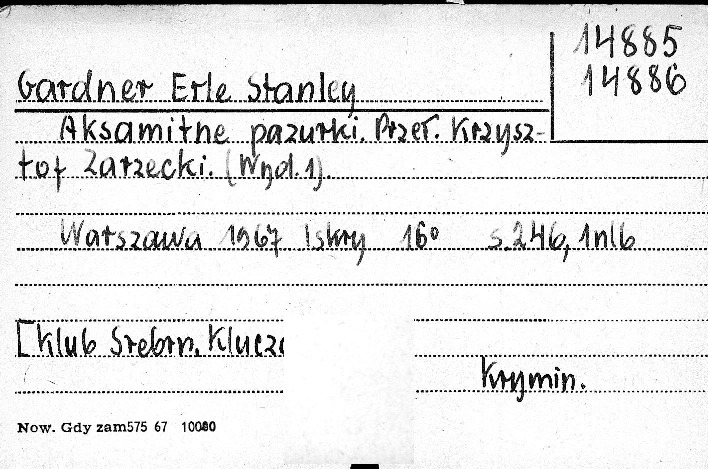 14885
14886
Gardner Erle Stanley
Aksamitne pazurki. Przeł. Krzysz-
tof Zarzecki. (Wyd. 1).
Warszawa 1967 Iskry 16° s. 246, 1nlb
[Klub Srebrn. Klucz
Krymin.
Now. Gdy zam575 67 10000